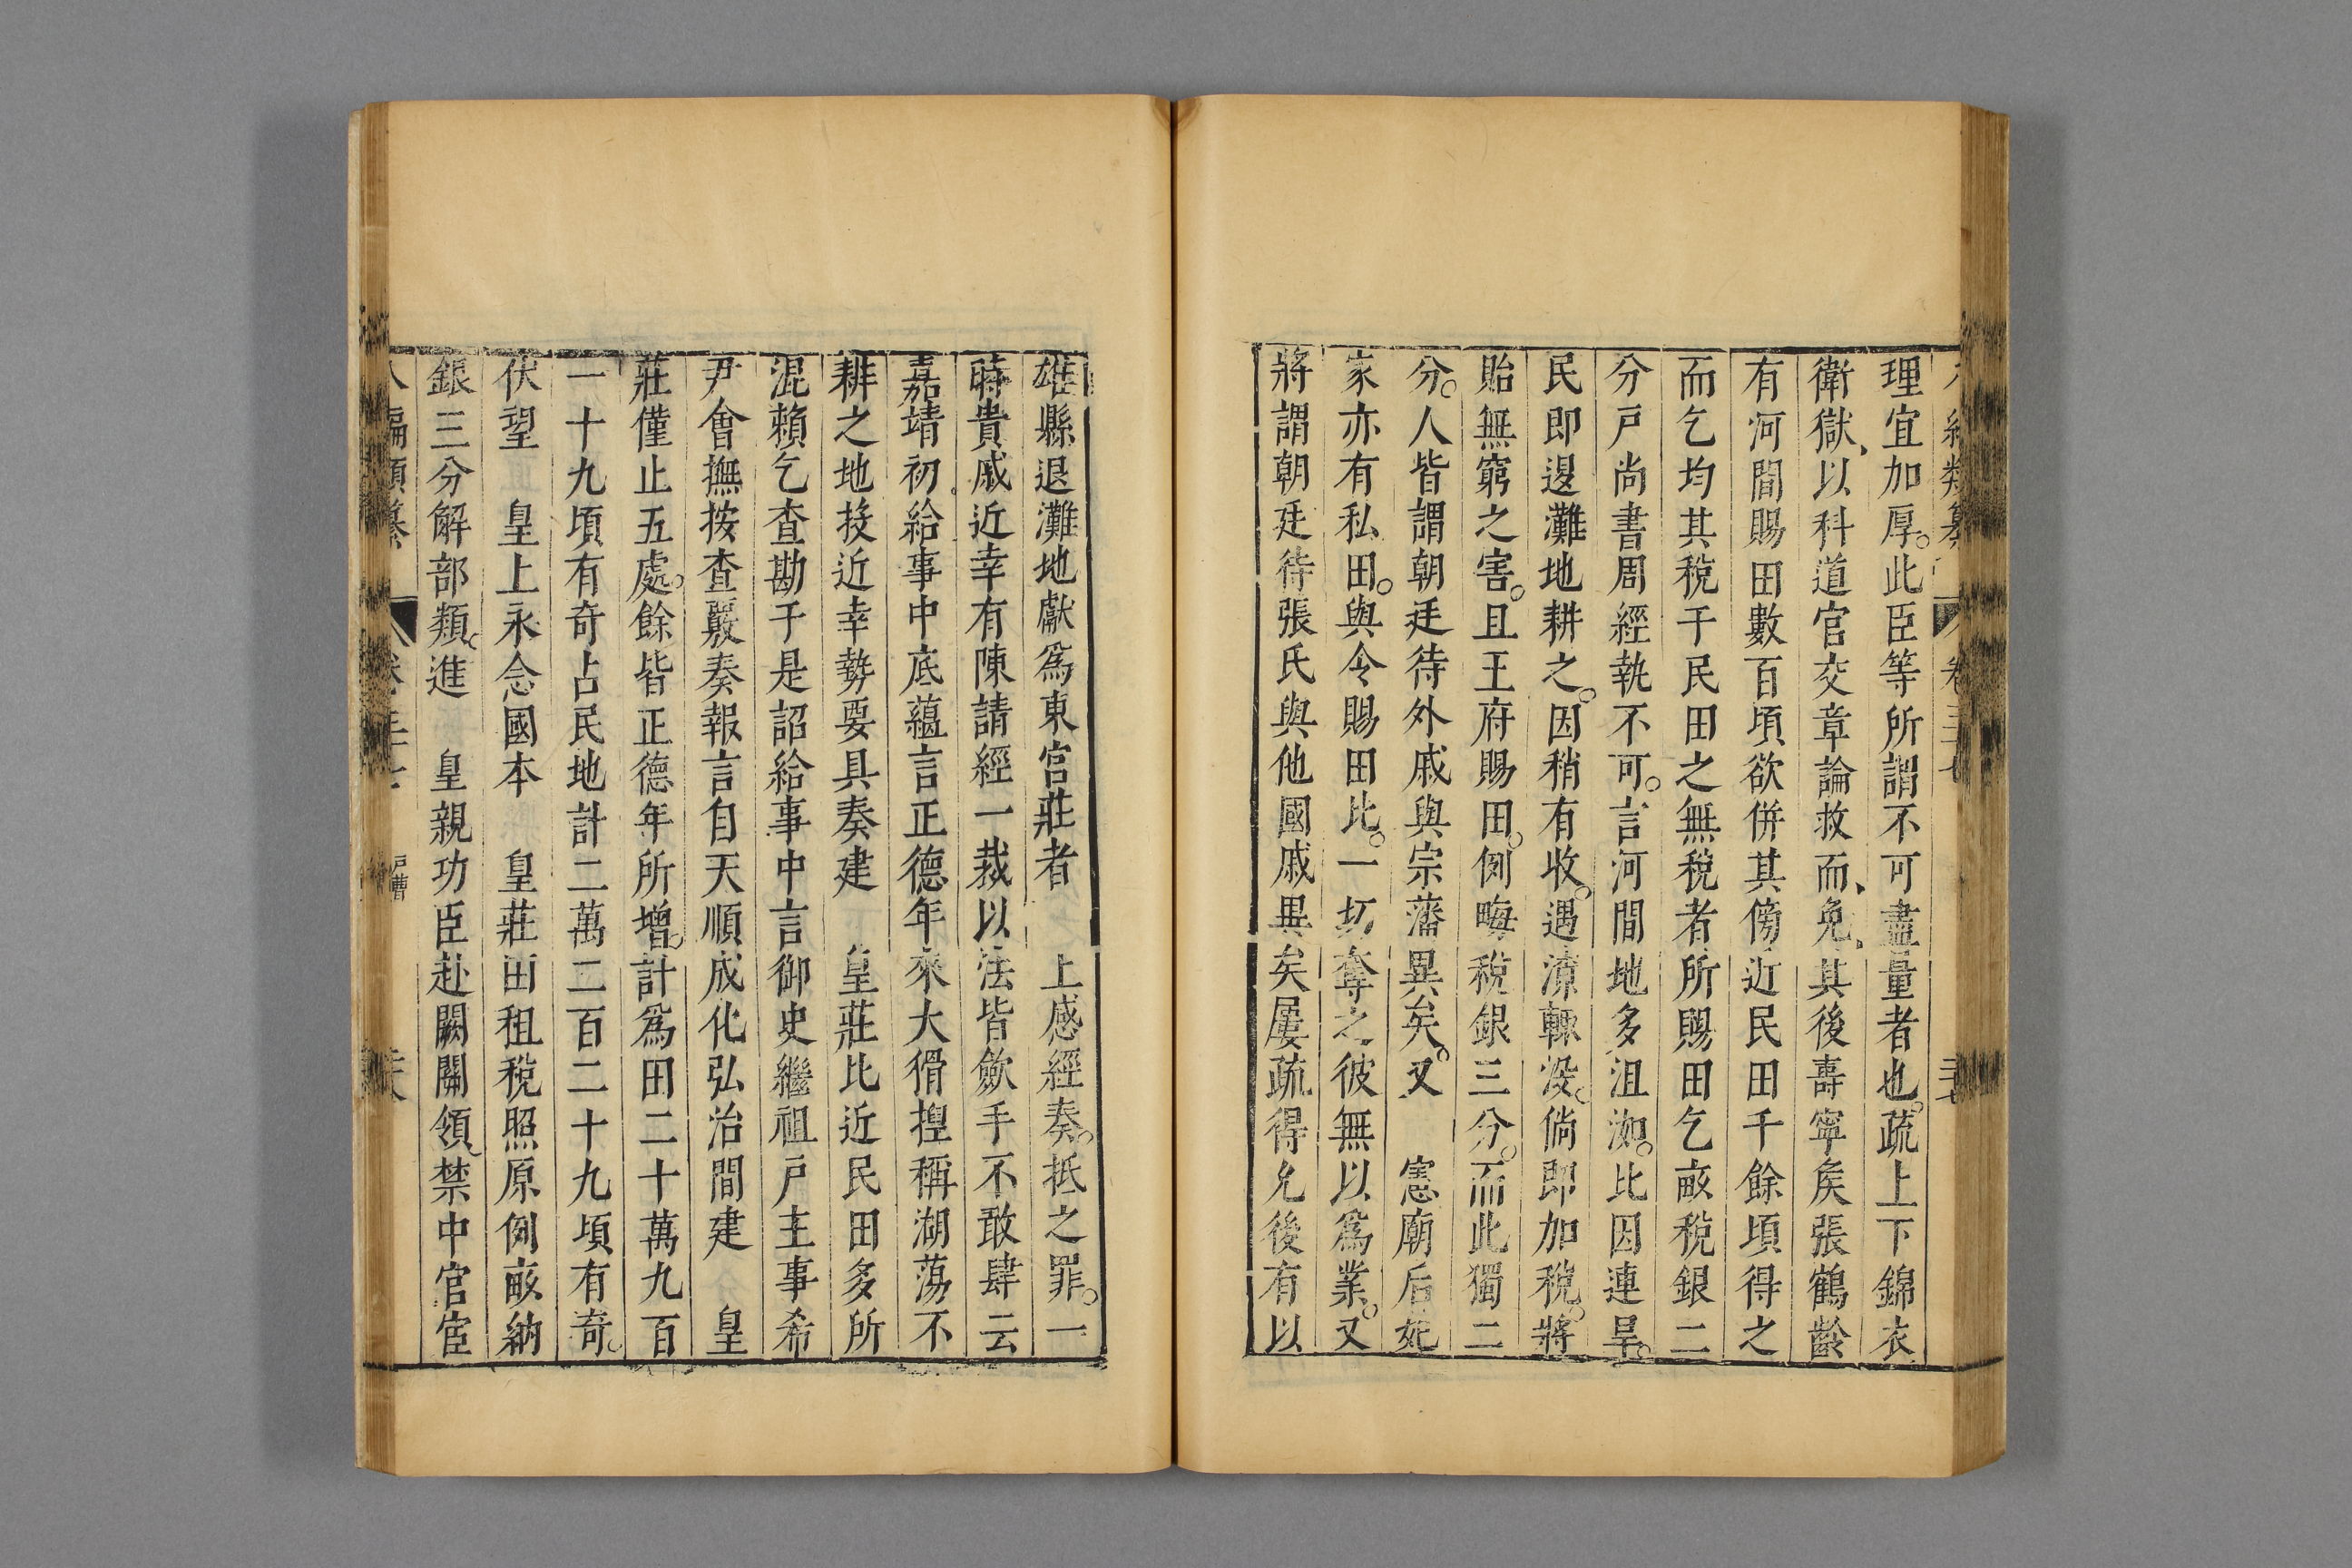 理宜加厚。此臣等所謂不可盡量者也。疏上下錦衣
衛獄、以科道官交章論救而、免、其後壽寧矦張鶴齡
有河間賜田數百頃欲併其傍近民田千餘頃得之
而乞均其稅于民田之無稅者所賜田乞畝稅銀二
分戸尚書周經執不可。言河間地多沮洳。比因連旱。
民即退灘地耕之。因稍有收。遇潦輙沒。倘即加稅。將
貽無窮之害。且王府賜田。例畮稅銀三分。而此獨二
分。人皆謂朝廷待外戚與宗藩異矣。又　憲廟后妃
家亦有私田。與令賜田比。一切奪之彼無以爲業。又
將謂朝廷待張氏與他國戚異矣屢疏得允後有以
雄縣退灘地獻爲東宮莊者　上感經奏。抵之罪。一
時貴戚近幸有陳請經一裁以法皆斂手不敢肆云
嘉靖初給事中底蘊言正德年來大猾揑稱湖蕩不
耕之地投近幸勢要具奏建　皇莊比近民田多所
混賴乞查勘于是詔給事中言御史繼祖戸主事希
尹會撫按查覈奏報言自天順成化弘治間建　皇
莊僅止五處。餘皆正德年所增。計爲田二十萬九百
一十九頃有奇占民地計二萬二百二十九頃有奇。
伏望　皇上永念國本　皇莊田租稅照原例畝納
銀三分解部類。進　皇親功臣赴闕關領。禁中官宦
戸曹